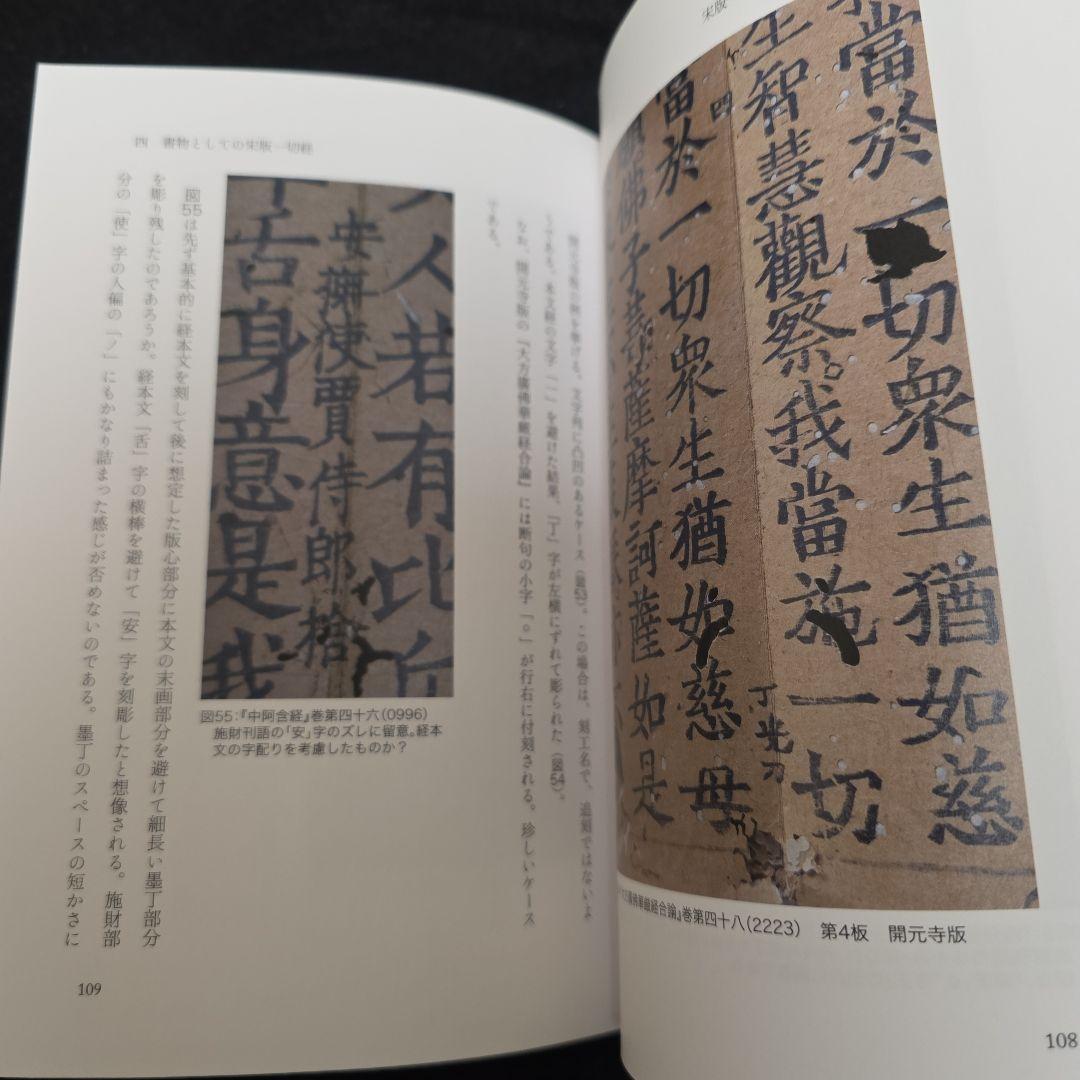 宋版
當於一切衆生猶如慈
生智慧觀察。我當施一切
四
丁光刀
當於一切衆生猶如慈母
佛子菩薩摩訶薩如是
華嚴経合論』巻第四十八(2223) 第4板 開元寺版
108
四 書物としての宋版一切経
開元寺版の例を挙げる。文字列に凸凹のあるケース(図53)。この場合は、刻工名で、追刻ではないよ
うである。本文横の文字「一」を避けた結果、「丁」字が左横にずれて彫られた(図54)。
なお、開元寺版の『大方廣佛華嚴経合論』には断句の小字「。」が行右に付刻される。珍しいケース
である。
人若有比丘
安撫使賈侍郎捨
舌身意是我
図55:『中阿含経』巻第四十六(0996)
施財刊語の「安」字のズレに留意。経本
文の字配りを考慮したものか?
図55は先ず基本的に経本文を刻して後に想定した版心部分に本文の末画部分を避けて細長い墨丁部分
を彫り残したのであろうか。経本文「舌」字の横棒を避けて「安」字を刻彫したと想像される。施財部
分の「使」字の人偏の「ノ」にもかなり詰まった感じが否めないのである。墨丁のスペースの短かさに
109